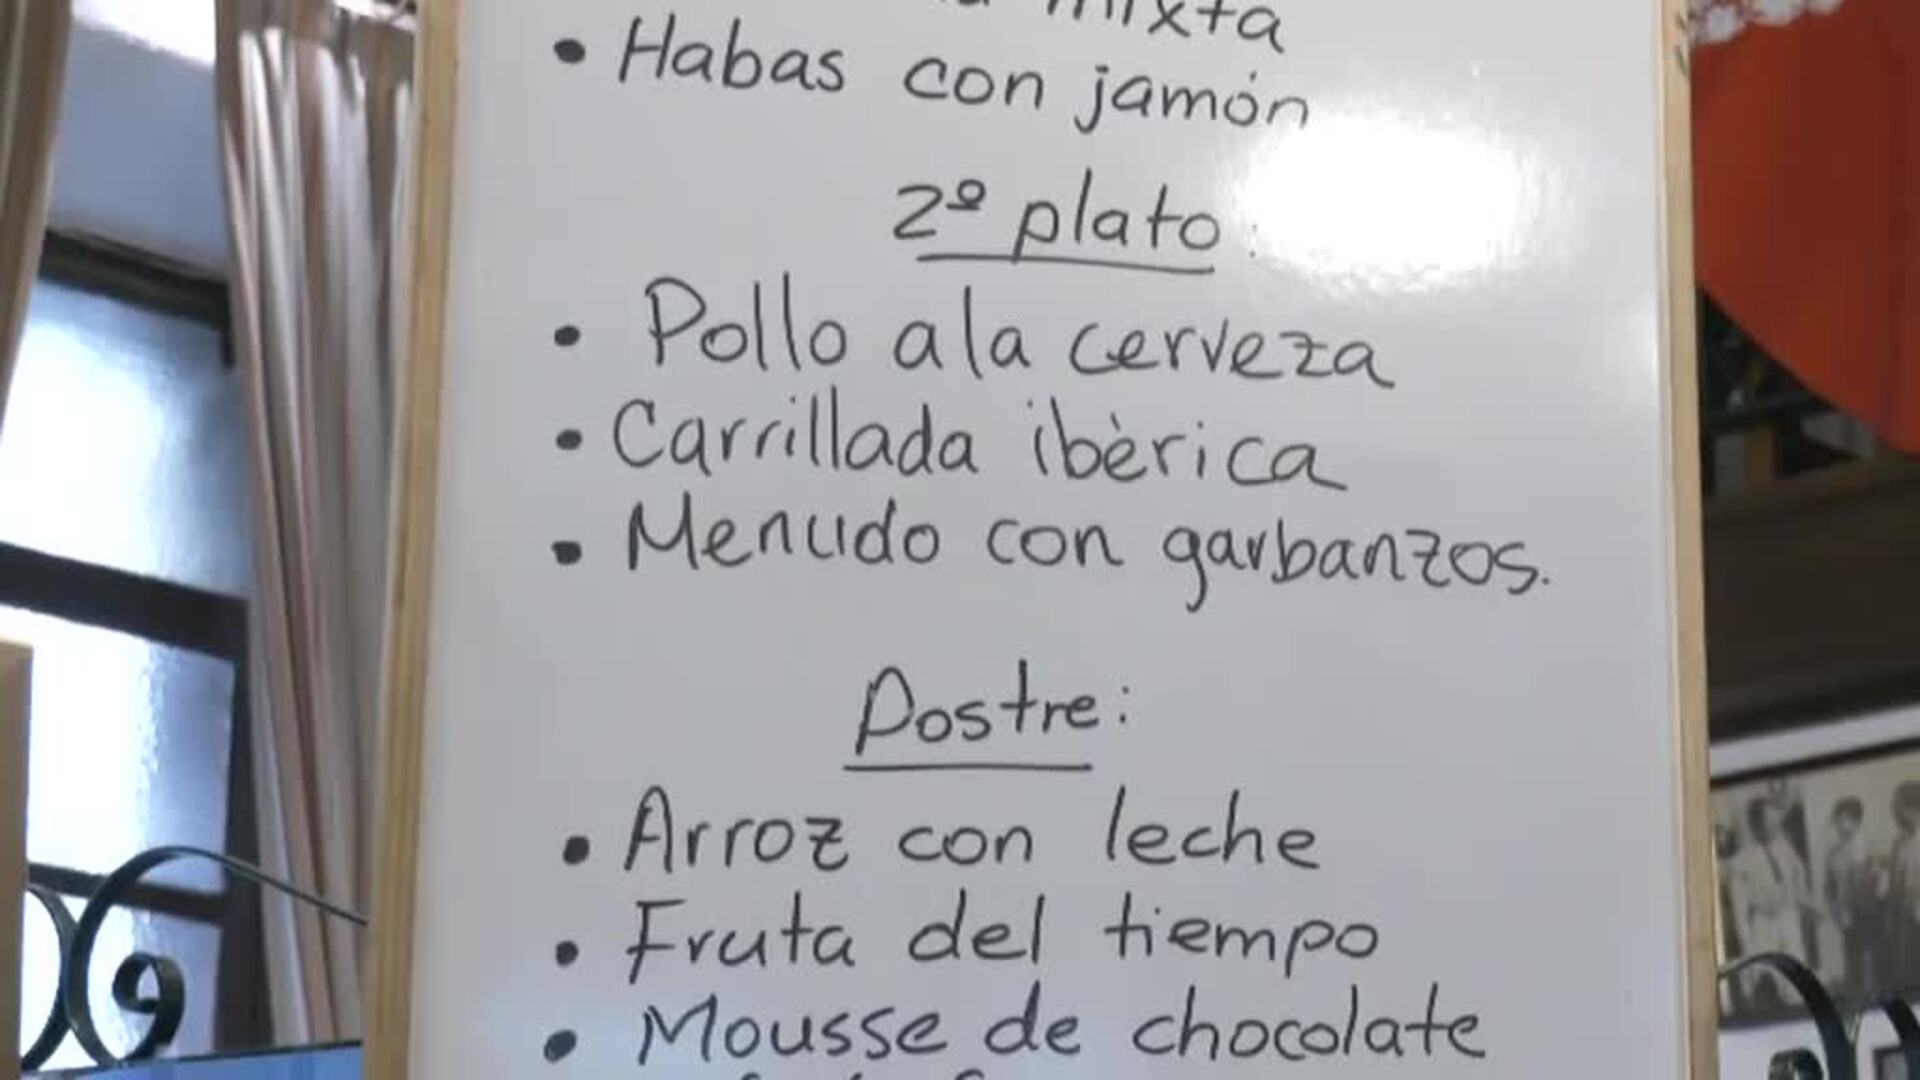 mixta
• Habas con jamón
2º plato:
• Pollo a la cerveza
• Carrillada ibèrica
• Menudo con garbanzos.
Postre:
• Arroz con leche
• Fruta del tiempo
• Mousse de chocolate